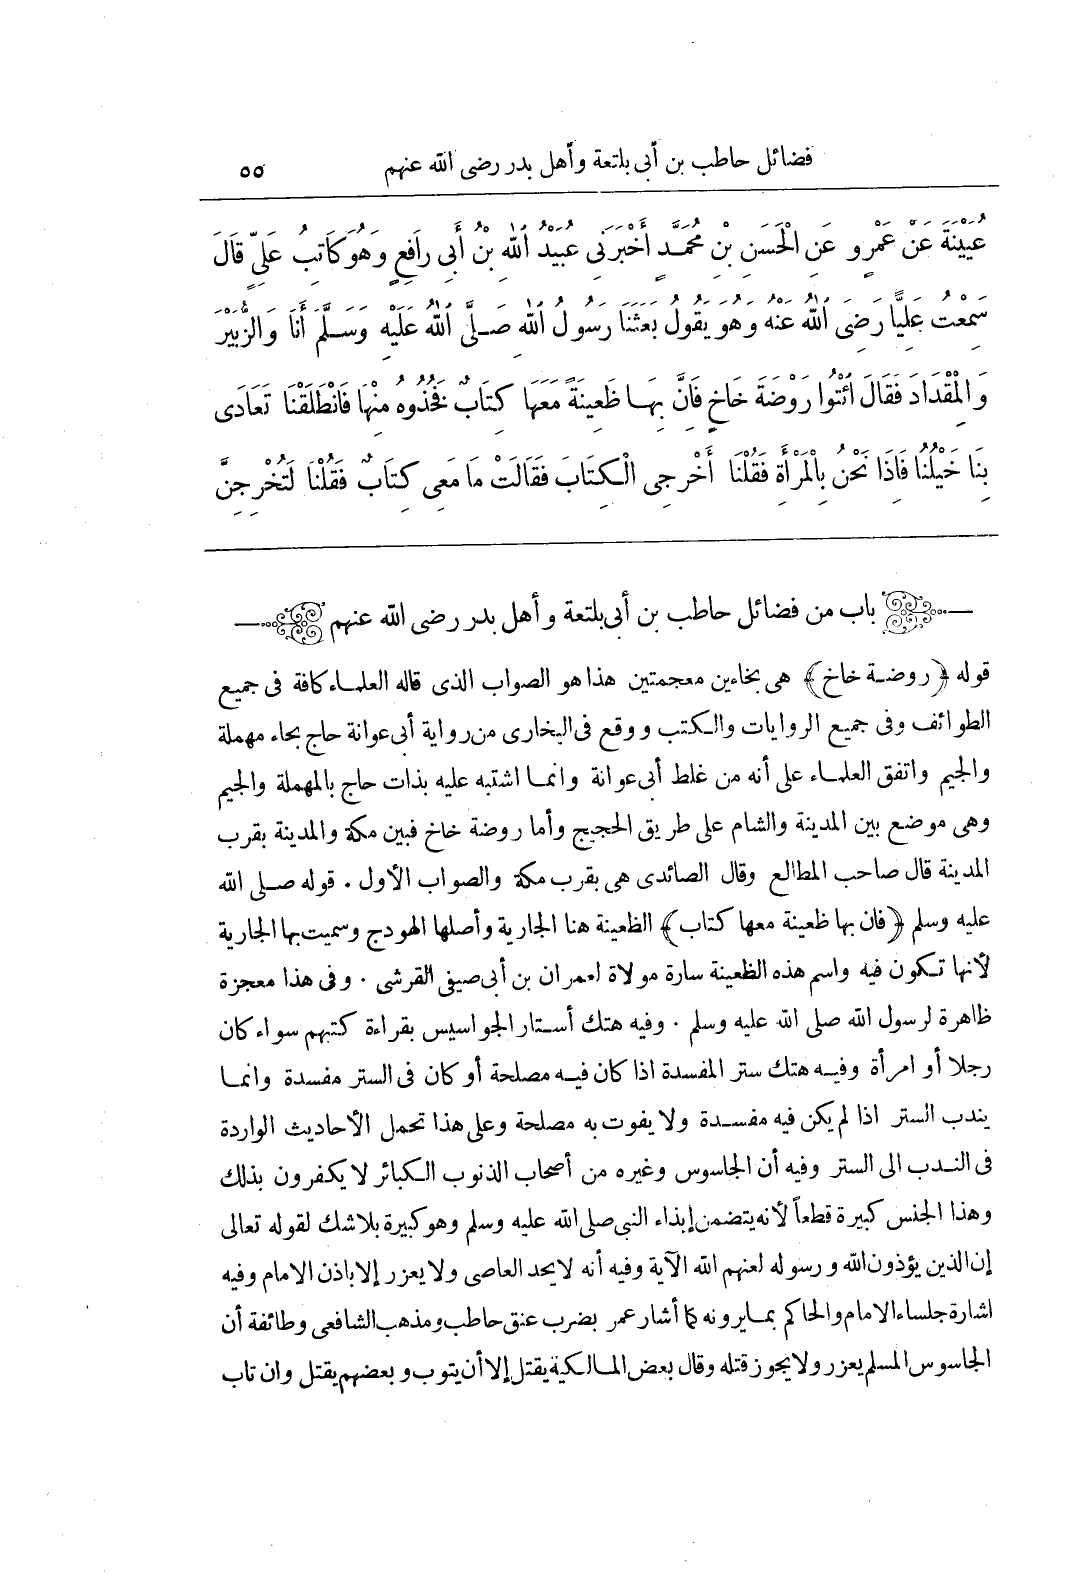 فضائل حاطب بن أبى بلتعة وأهل بدر رضى الله عنهم ٥٥
عُيَيْنَةَ عَنْ عَمْرٍو عَنِ الْحَسَنِ بْنِ مُحَمَّدٍ أَخْبَرَنِى عُبَيْدُ اللهِ بْنُ أَبِى رَافِعٍ وَهُوَ كَاتِبُ عَلِىٍّ قَالَ
سَمِعْتُ عَلِيًّا رَضِىَ اللهُ عَنْهُ وَهُوَ يَقُولُ بَعَثَنَا رَسُولُ اللهِ صَلَّى اللهُ عَلَيْهِ وَسَلَّمَ أَنَا وَالزُّبَيْرَ
وَالْمِقْدَادَ فَقَالَ ائْتُوا رَوْضَةَ خَاخٍ فَانَّ بِهَا ظَعِينَةً مَعَهَا كِتَابٌ فَخُذُوهُ مِنْهَا فَانْطَلَقْنَا تَعَادَى
بِنَا خَيْلُنَا فَاذَا نَحْنُ بِالْمَرْأَةِ فَقُلْنَا أَخْرِجِى الْكِتَابَ فَقَالَتْ مَا مَعِى كِتَابٌ فَقُلْنَا لَتُخْرِجِنَّ
باب من فضائل حاطب بن أبى بلتعة وأهل بدر رضى الله عنهم
قوله ﴿روضة خاخ﴾ هى بخاءين معجمتين هذا هو الصواب الذى قاله العلماء كافة فى جميع
الطوائف وفى جميع الروايات والكتب ووقع فى البخارى من رواية أبى عوانة حاج بحاء مهملة
والجيم واتفق العلماء على أنه من غلط أبى عوانة وانما اشتبه عليه بذات حاج بالمهملة والجيم
وهى موضع بين المدينة والشام على طريق الحجيج وأما روضة خاخ فبين مكة والمدينة بقرب
المدينة قال صاحب المطالع وقال الصائدى هى بقرب مكة والصواب الأول . قوله صلى الله
عليه وسلم ﴿فان بها ظعينة معها كتاب﴾ الظعينة هنا الجارية وأصلها الهودج وسميت بها الجارية
لأنها تكون فيه واسم هذه الظعينة سارة مولاة لعمران بن أبى صيفى القرشى . وفى هذا معجزة
ظاهرة لرسول الله صلى الله عليه وسلم . وفيه هتك أستار الجواسيس بقراءة كتبهم سواء كان
رجلا أو امرأة وفيه هتك ستر المفسدة اذا كان فيه مصلحة أو كان فى الستر مفسدة وانما
يندب الستر اذا لم يكن فيه مفسدة ولا يفوت به مصلحة وعلى هذا تحمل الأحاديث الواردة
فى الندب الى الستر وفيه أن الجاسوس وغيره من أصحاب الذنوب الكبائر لا يكفرون بذلك
وهذا الجنس كبيرة قطعاً لأنه يتضمن إيذاء النبى صلى الله عليه وسلم وهو كبيرة بلا شك لقوله تعالى
إن الذين يؤذون الله ورسوله لعنهم الله الآية وفيه أنه لا يحد العاصى ولا يعزر إلا باذن الامام وفيه
اشارة جلساء الامام والحاكم بما يرونه كما أشار عمر بضرب عنق حاطب ومذهب الشافعى وطائفة أن
الجاسوس المسلم يعزر ولا يجوز قتله وقال بعض المالكية يقتل إلا أن يتوب وبعضهم يقتل وان تاب